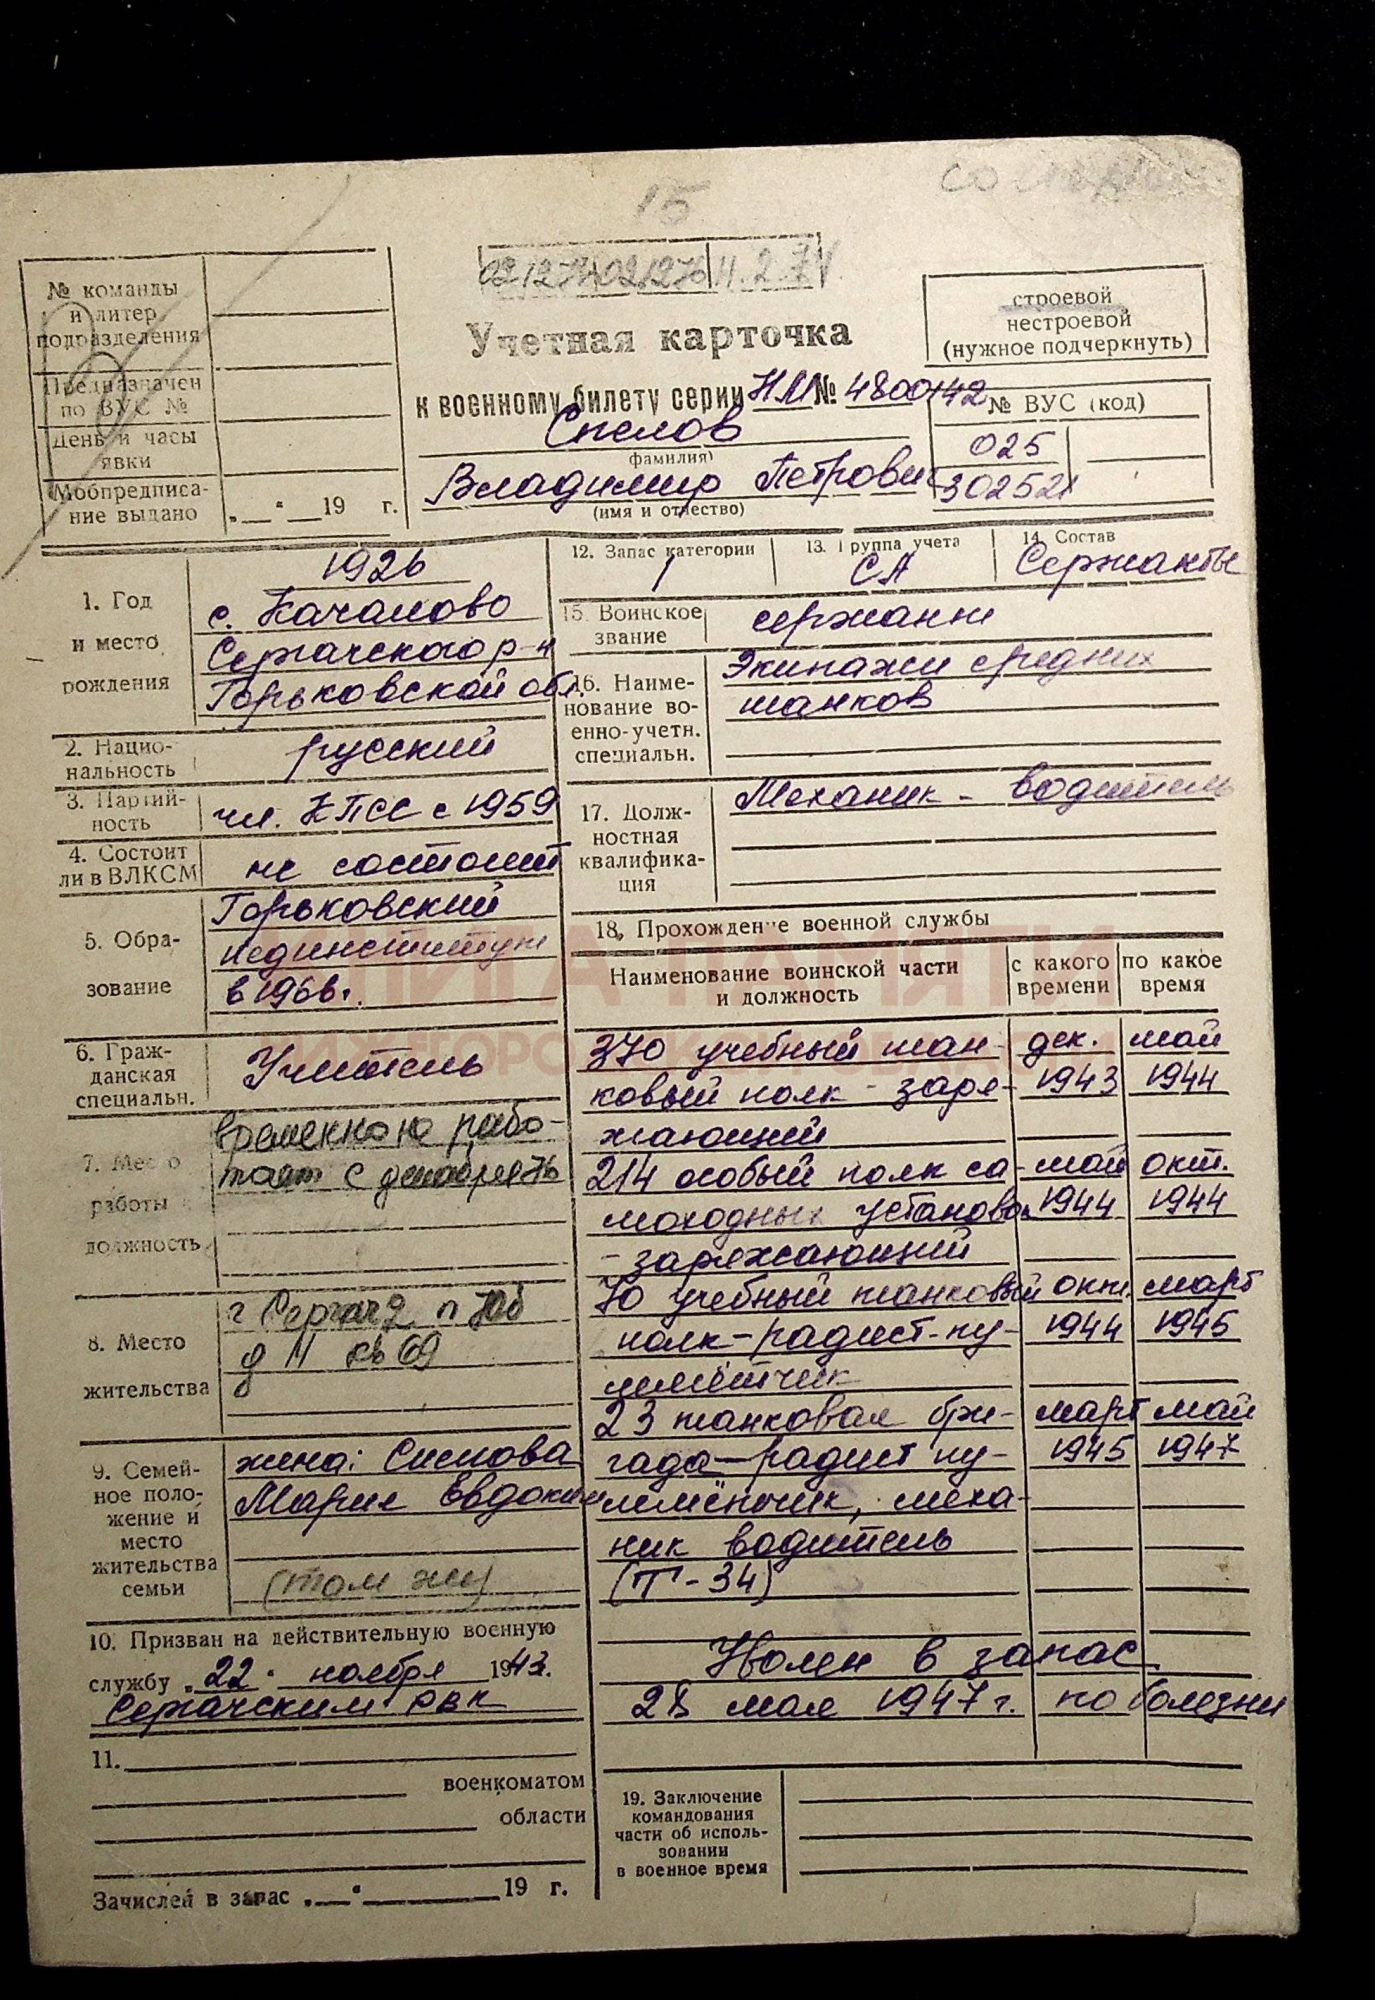 15
№ команды
и литер
подразделения
Предназначен
по ВУС №
День и часы
явки
Мобпредписа-
ние выдано
„ “ 19 г.
Учетная карточка
к военному билету серии НМ № 4800142
Спелов
(фамилия)
Владимир Петрович
(имя и отчество)
строевой
нестроевой
(нужное подчеркнуть)
№ ВУС (код)
025
302521
1. Год
и место
рождения
1926
с. Качалово
Сергачского р-н
Горьковской обл.
2. Нацио-
нальность
русский
3. Партий-
ность
чл. КПСС с 1959
4. Состоит
ли в ВЛКСМ
не состоит
5. Обра-
зование
Горьковский
пединститут
в 1966г.
6. Граж-
данская
специальн.
Учитель
7. Место
работы
должность
временно не рабо-
тает с декабря 76
8. Место
жительства
г Сергач 2 п Юб
д 11 кв 69
9. Семей-
ное поло-
жение и
место
жительства
семьи
жена: Спелова
Мария Евдоким
(там же)
10. Призван на действительную военную
службу „22“ ноября 1943г.
Сергачским РВК
11.
военкоматом
области
Зачислен в запас „ “ 19 г.
12. Запас категории
1
13. Группа учета
СА
14. Состав
Сержанты
15. Воинское
звание
сержант
16. Наиме-
нование во-
енно-учетн.
специальн.
Экипажи средних
танков
17. Долж-
ностная
квалифика-
ция
Механик - водитель
18. Прохождение военной службы
Наименование воинской части
и должность
с какого
времени
по какое
время
370 учебный тан- дек. май
ковый полк - заря- 1943 1944
жающий
214 особый полк са- май окт.
моходных установок 1944 1944
- заряжающий
70 учебный танковый окт. март
полк - радист-пу- 1944 1945
лемётчик
23 танковая бри- март май
гада - радист пу- 1945 1947
лемётчик, меха-
ник водитель
(Т-34)
Уволен в запас
28 мая 1947г. по болезни
19. Заключение
командования
части об исполь-
зовании
в военное время
КНИГА ПАМЯТИ
НИЖЕГОРОДСКОЙ ОБЛАСТИ